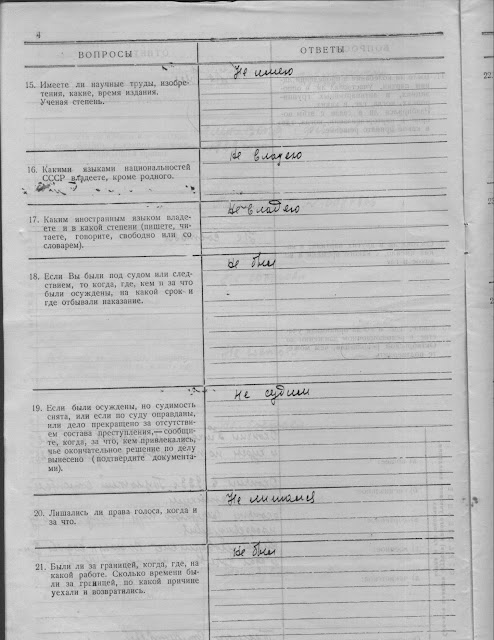 4
ВОПРОСЫ
ОТВЕТЫ
15. Имеете ли научные труды, изобре-
тения, какие, время издания.
Ученая степень.
Не имею
16. Какими языками национальностей
СССР владеете, кроме родного.
Не владею
17. Каким иностранным языком владе-
ете и в какой степени (пишете, чи-
таете, говорите, свободно или со
словарем).
Не владею
18. Если Вы были под судом или след-
ствием, то когда, где, кем и за что
были осуждены, на какой срок и
где отбывали наказание.
Не был
19. Если были осуждены, но судимость
снята, или если по суду оправданы,
или дело прекращено за отсутстви-
ем состава преступления,— сообщи-
те, когда, за что, кем привлекались,
чье окончательное решение по делу
вынесено (подтвердите документа-
ми).
Не судим
20. Лишались ли права голоса, когда и
за что.
Не лишался
21. Были ли за границей, когда, где, на
какой работе. Сколько времени бы-
ли за границей, по какой причине
уехали и возвратились.
Не был
22.